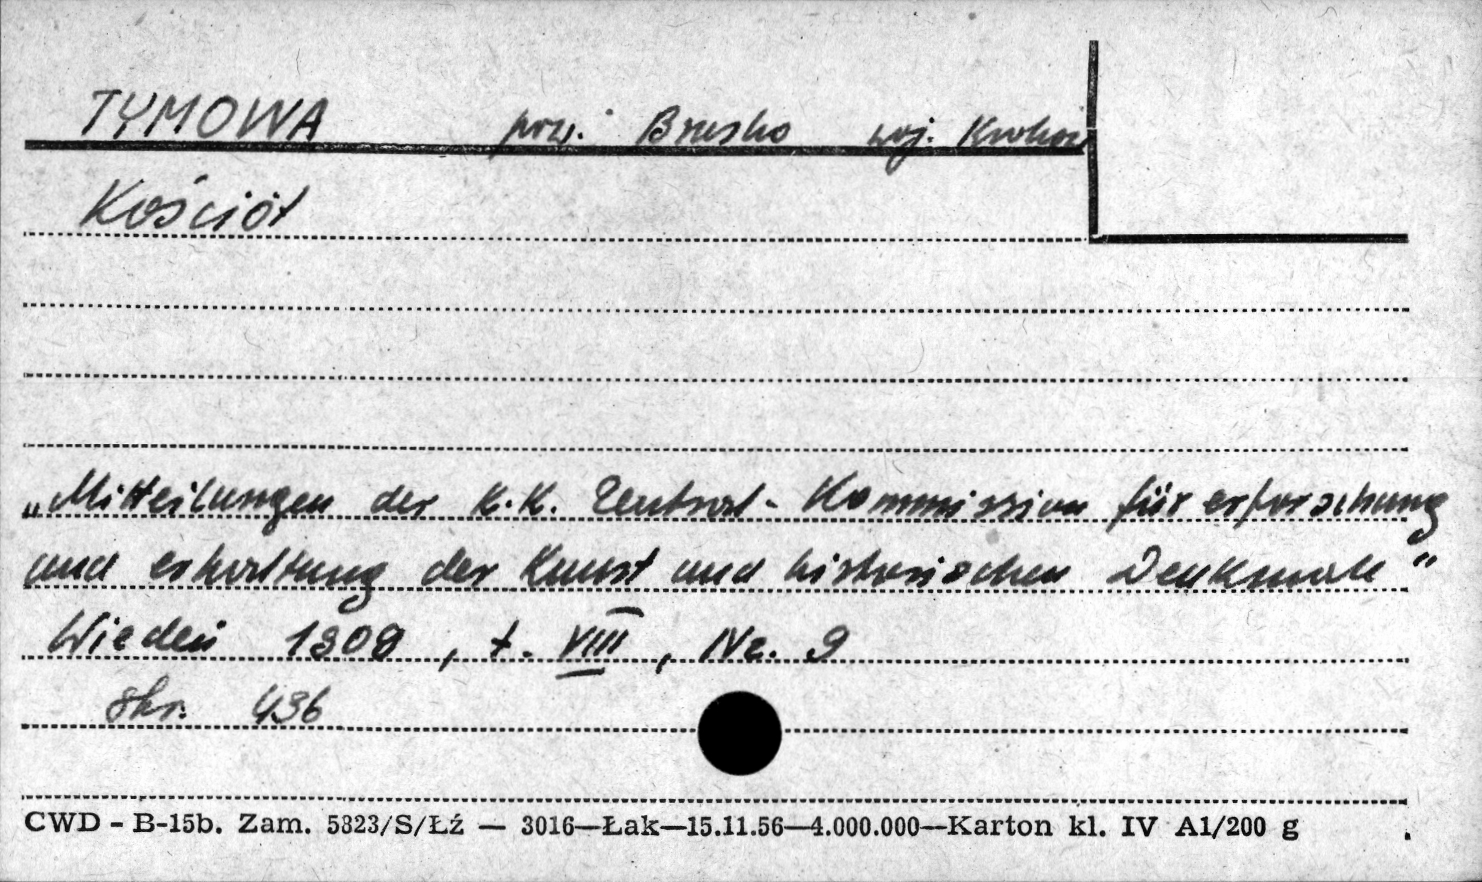 TYMOWA pow. Brzesko woj. Kraków
Kościół
„Mitteilungen der K.K. Zentral-Kommission für erforschung
und erhaltung der Kunst und historischen Denkmale"
Wiedeń 1909, t. VIII, Nr. 9
str. 436
CWD - B-15b. Zam. 5823/S/Łź — 3016—Łak—15.11.56—4.000.000—Karton kl. IV A1/200 g